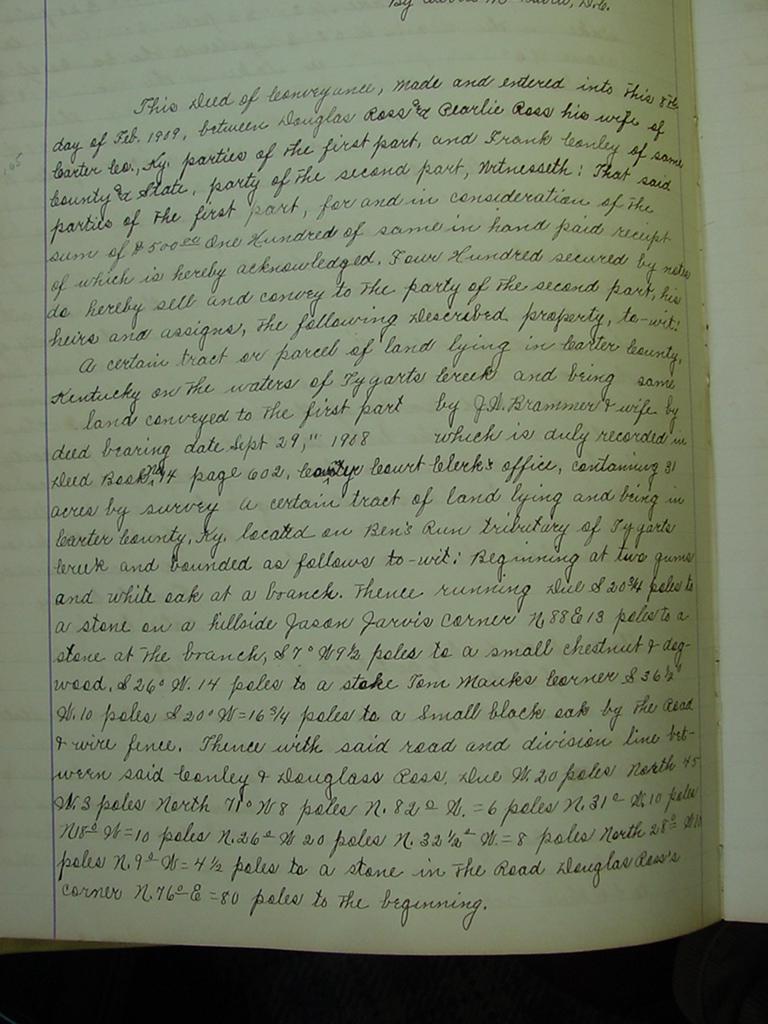 This Deed of Conveyance, made and entered into this 8th
day of Feb. 1909, between Douglas Ross & Pearlie Ross his wife of
Carter Co., Ky. parties of the first part, and Frank Conley of same
County & State, party of the second part, Witnesseth: That said
parties of the first part, for and in consideration of the
sum of $500.00 One Hundred of same in hand paid receipt
of which is hereby acknowledged. Four Hundred secured by notes
do hereby sell and convey to the party of the second part, his
heirs and assigns, the following described property, to-wit:
A certain tract or parcel of land lying in Carter County,
Kentucky on the waters of Tygarts Creek and being same
land conveyed to the first part by J.D. Brammer & wife by
deed bearing date Sept 29," 1908 which is duly recorded in
Deed Book No. 14 page 602, County Court Clerk's office, containing 31
acres by survey A certain tract of land lying and being in
Carter County, Ky. located on Ben's Run tributary of Tygarts
Creek and bounded as follows to-wit: Beginning at two gums
and white oak at a branch. Thence running Due S 20 3/4 poles to
a stone on a hillside Jason Jarvis corner N 88 E 13 poles to a
stone at the branch, S 7° W 9 1/2 poles to a small chestnut & dog-
wood, S 26° W. 14 poles to a stake Tom Mauks Corner S 36 1/2°
W. 10 poles S 20° W = 16 3/4 poles to a small black oak by the Road
& wire fence. Thence with said road and division line bet-
ween said Conley & Douglass Ross, Due W. 20 poles North 45
W. 3 poles North 71° W 8 poles N. 82° W. = 6 poles N. 31° W. 10 poles
N 18° W = 10 poles N. 26° W 20 poles N. 32 1/2° W. = 8 poles North 28° W 10
poles N. 9° W = 4 1/2 poles to a stone in the Road Douglas Ross's
corner N. 76° E = 80 poles to the beginning.